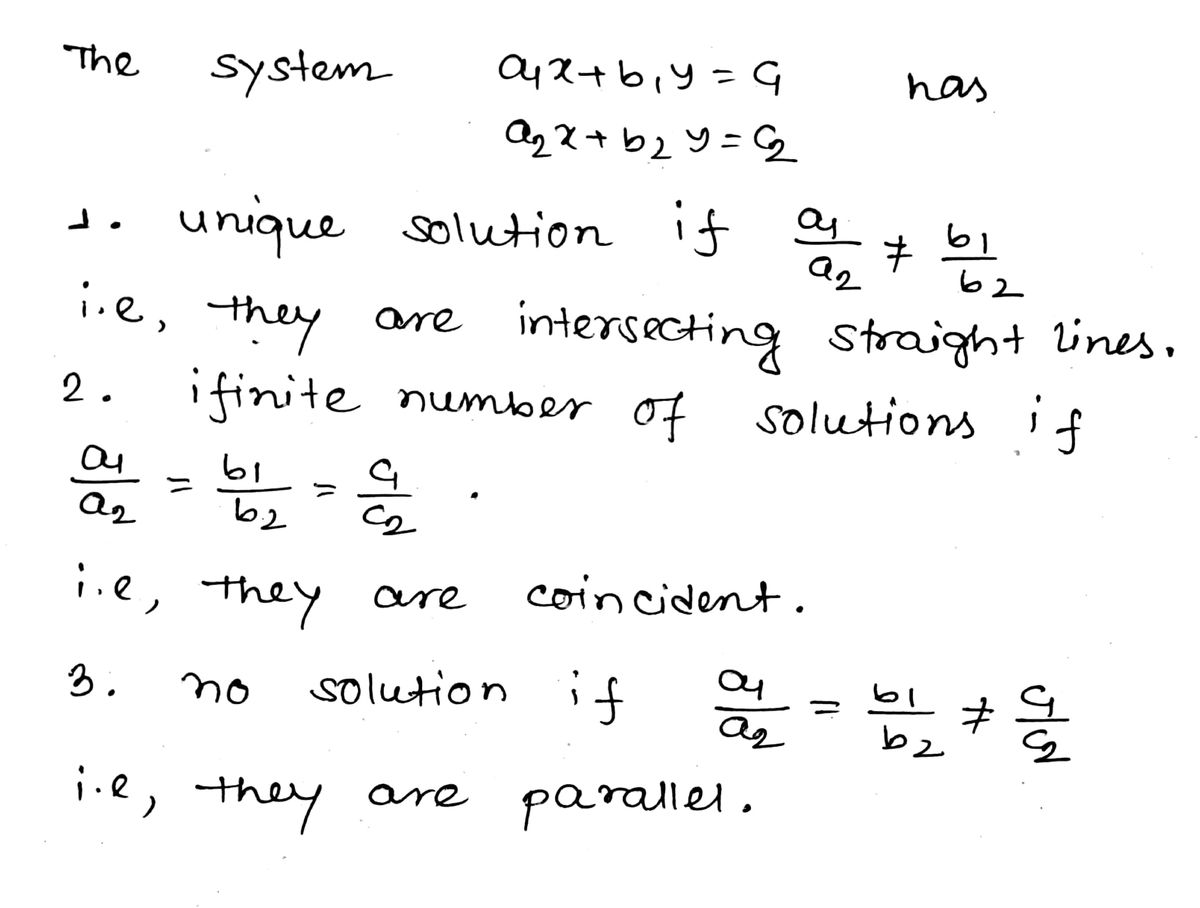 The system a₁x + b₁y = c₁ has
a₂x + b₂y = c₂
1. unique solution if a₁/a₂ ≠ b₁/b₂
i.e, they are intersecting straight lines.
2. ifinite number of solutions if
a₁/a₂ = b₁/b₂ = c₁/c₂ .
i.e, they are coincident.
3. no solution if a₁/a₂ = b₁/b₂ ≠ c₁/c₂
i.e, they are parallel.